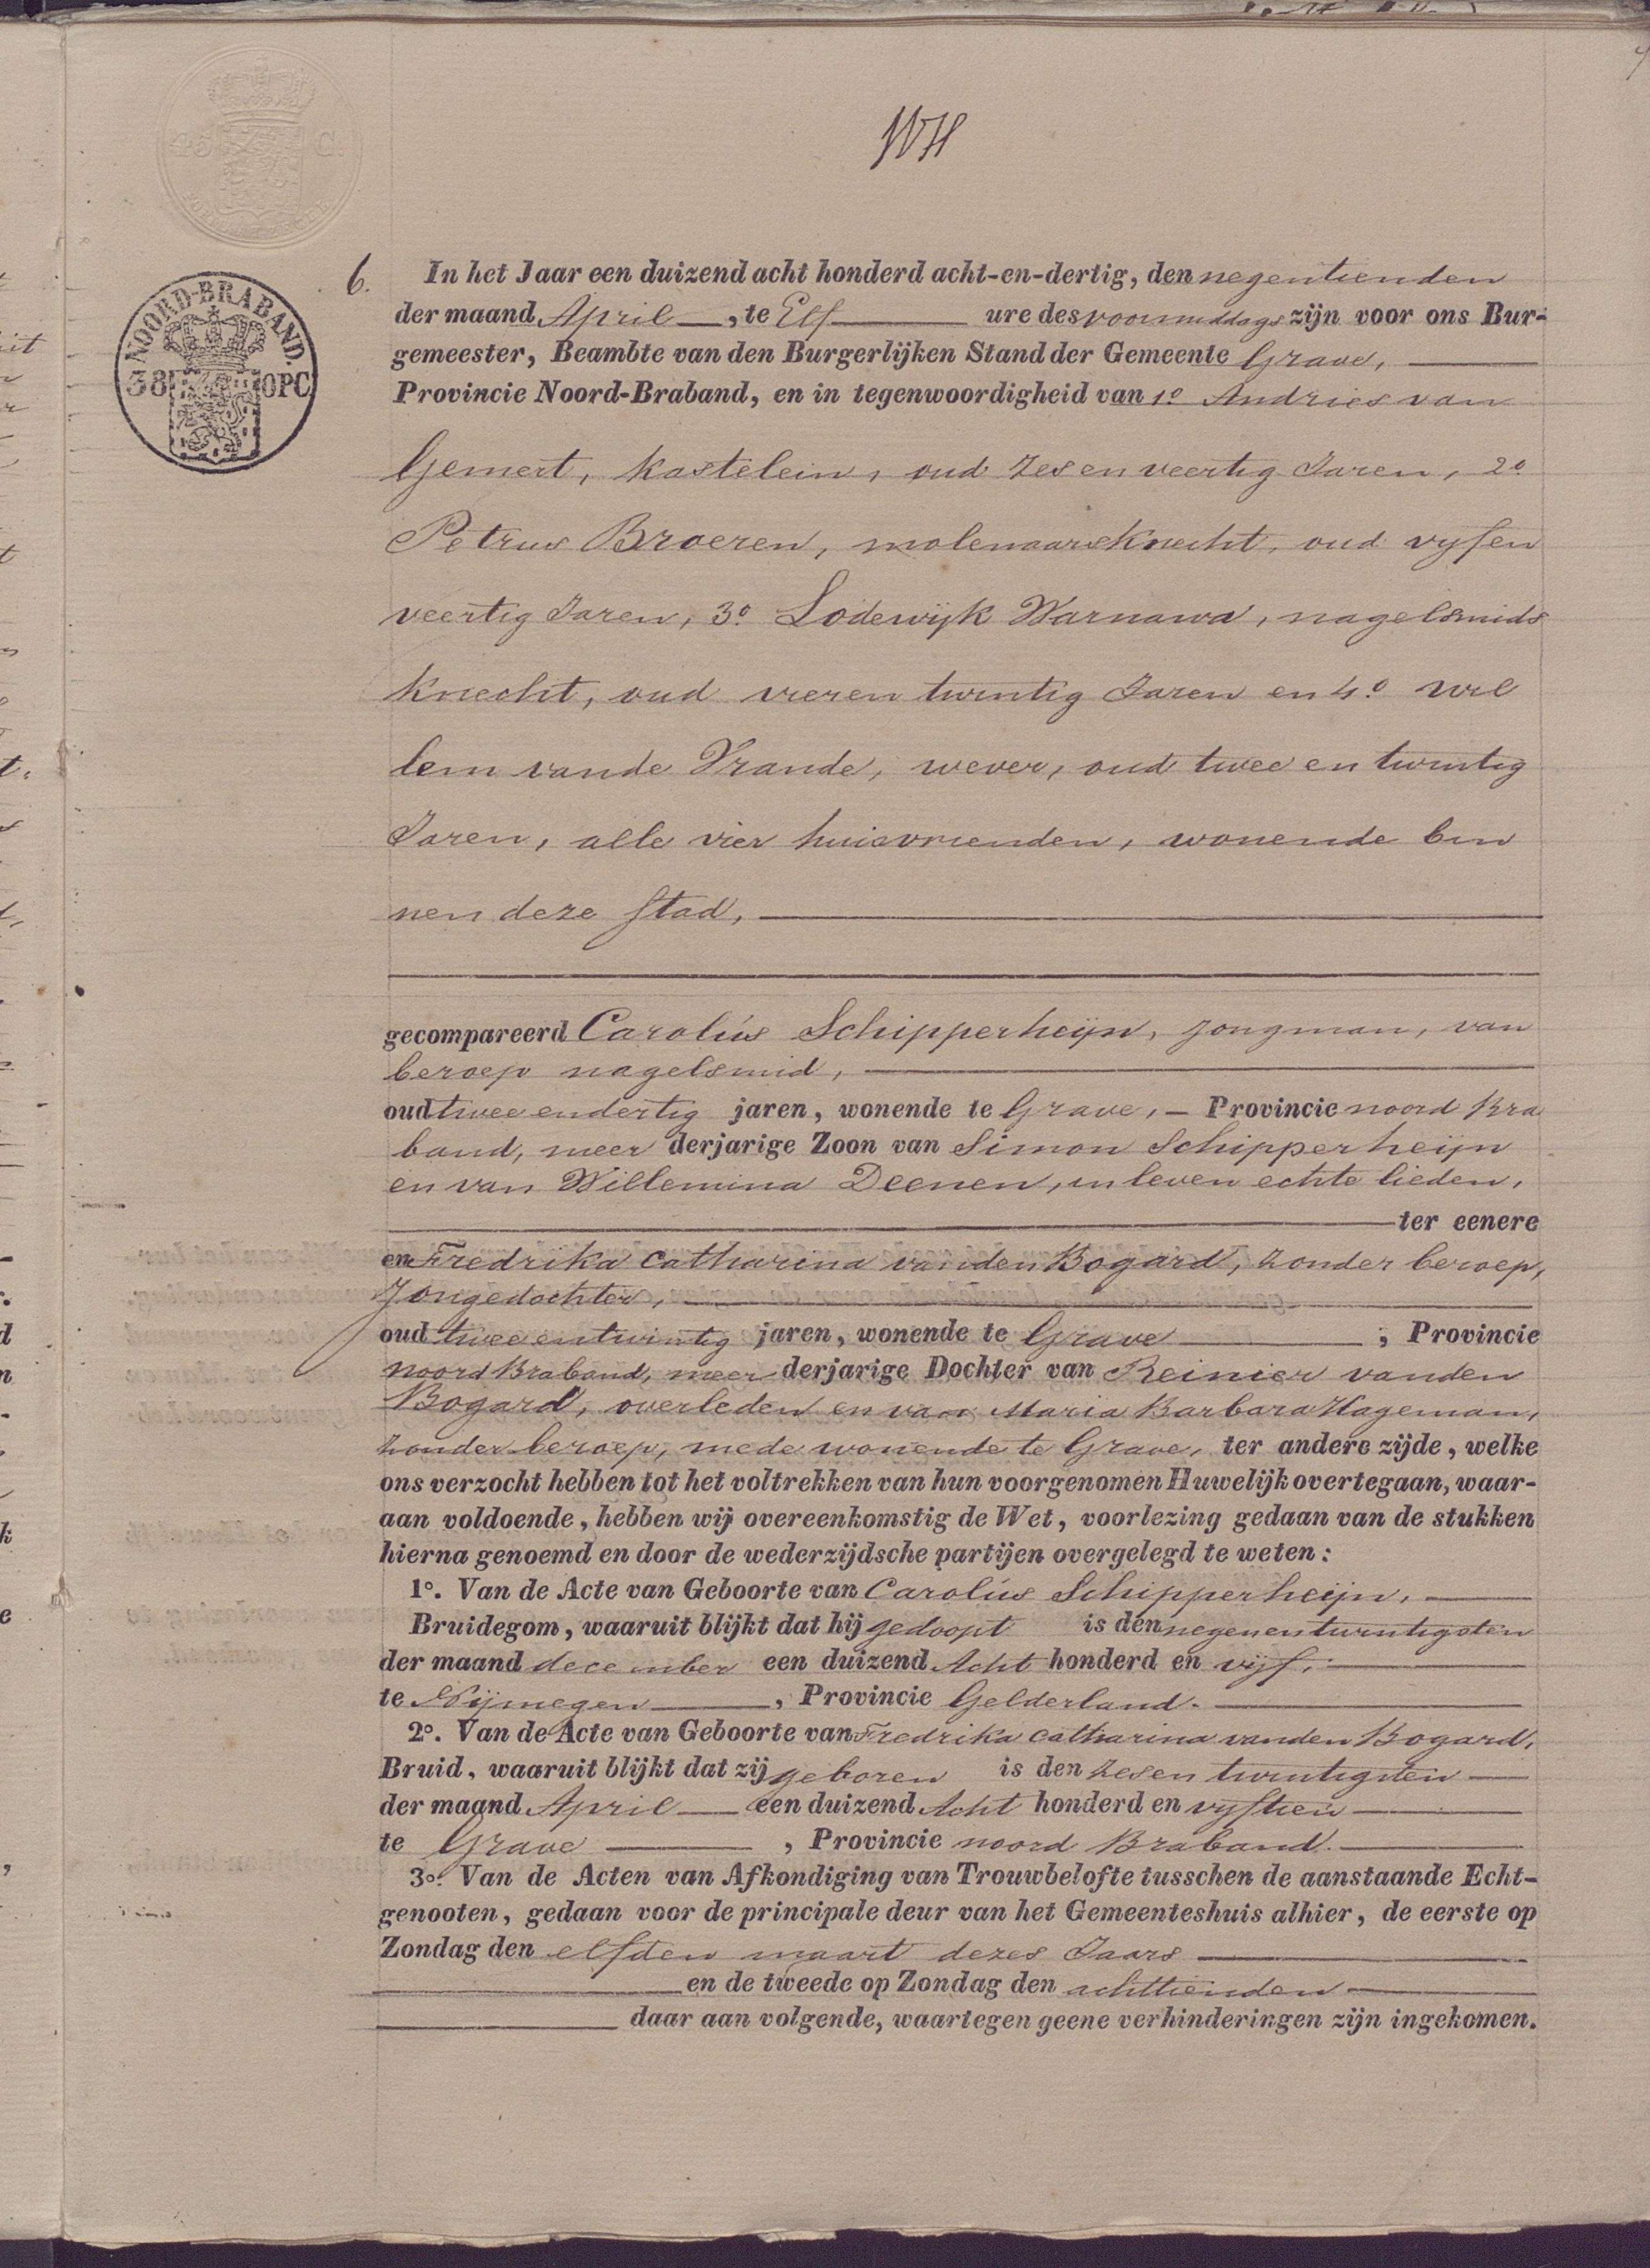 WH
25 C.
NOORD-BRABAND.
38 OPC
6. In het Jaar een duizend acht honderd acht-en-dertig, den negentienden
der maand April, te Elf ure des voormiddags zijn voor ons Bur-
gemeester, Beambte van den Burgerlijken Stand der Gemeente Grave,
Provincie Noord-Braband, en in tegenwoordigheid van 1o Andries van
Gemert, kastelein, oud zes en veertig Jaren, 2o
Petrus Broeren, molenaarsknecht, oud vyf en
veertig Jaren, 3o Lodewijk Warnawa, nagelsmids
knecht, oud vier en twintig Jaren en 4o Wil
lem vande Vrande, wever, oud twee en twintig
Jaren, alle vier huisvrienden, wonende bin
nen deze stad,
gecompareerd Carolus Schipperheijn, Jongman, van
beroep nagelsmid,
oud twee en dertig jaren, wonende te Grave, Provincie noord Bra
band, meer derjarige Zoon van Simon Schipperheijn
en van Willemina Deenen, in leven echte lieden,
ter eenere
en Fredrika Catharina vanden Bogard, zonder beroep,
Jongedochter,
oud twee en twintig jaren, wonende te Grave, Provincie
noord Braband, meer derjarige Dochter van Reinier vanden
Bogard, overleden en van Maria Barbara Hageman,
zonder beroep, mede wonende te Grave, ter andere zijde, welke
ons verzocht hebben tot het voltrekken van hun voorgenomen Huwelijk overtegaan, waar-
aan voldoende, hebben wij overeenkomstig de Wet, voorlezing gedaan van de stukken
hierna genoemd en door de wederzijdsche partijen overgelegd te weten:
1o. Van de Acte van Geboorte van Carolus Schipperheijn,
Bruidegom, waaruit blijkt dat hij gedoopt is den negen en twintigsten
der maand december een duizend Acht honderd en vijf,
te Nijmegen, Provincie Gelderland.
2o. Van de Acte van Geboorte van Fredrika Catharina vanden Bogard,
Bruid, waaruit blijkt dat zij geboren is den zes en twintigsten
der maand April een duizend Acht honderd en vyftien
te Grave, Provincie noord Braband.
3o. Van de Acten van Afkondiging van Trouwbelofte tusschen de aanstaande Echt-
genooten, gedaan voor de principale deur van het Gemeenteshuis alhier, de eerste op
Zondag den elfden maart dezes Jaars
en de tweede op Zondag den achttienden
daar aan volgende, waartegen geene verhinderingen zijn ingekomen.